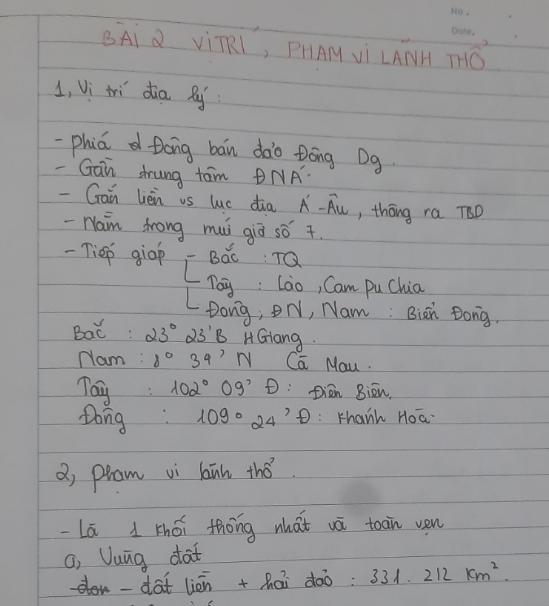 No.
Date.
BÀI 2 VỊ TRÍ, PHẠM VI LÃNH THỔ
1, Vị trí địa lý :
- phiá Đông bán đảo Đông Dg.
- Gần trung tâm ĐNÁ.
- Gắn liền vs lục địa Á-Âu, thông ra TBD
- Nằm trong múi giờ số 7.
- Tiếp giáp - Bắc : TQ
Tây : Lào, Cam pu chia
Đông, ĐN, Nam : Biển Đông.
Bắc : 23° 23'B H Giang.
Nam : 8° 34' N Cà Mau.
Tây : 102° 09' Đ : Điện Biên.
Đông : 109° 24' Đ : Khánh Hoà.
2, phạm vi lãnh thổ.
- Là 1 khối thống nhất và toàn vẹn
a, Vùng đất
- đất liền + hải đảo : 331.212 Km².